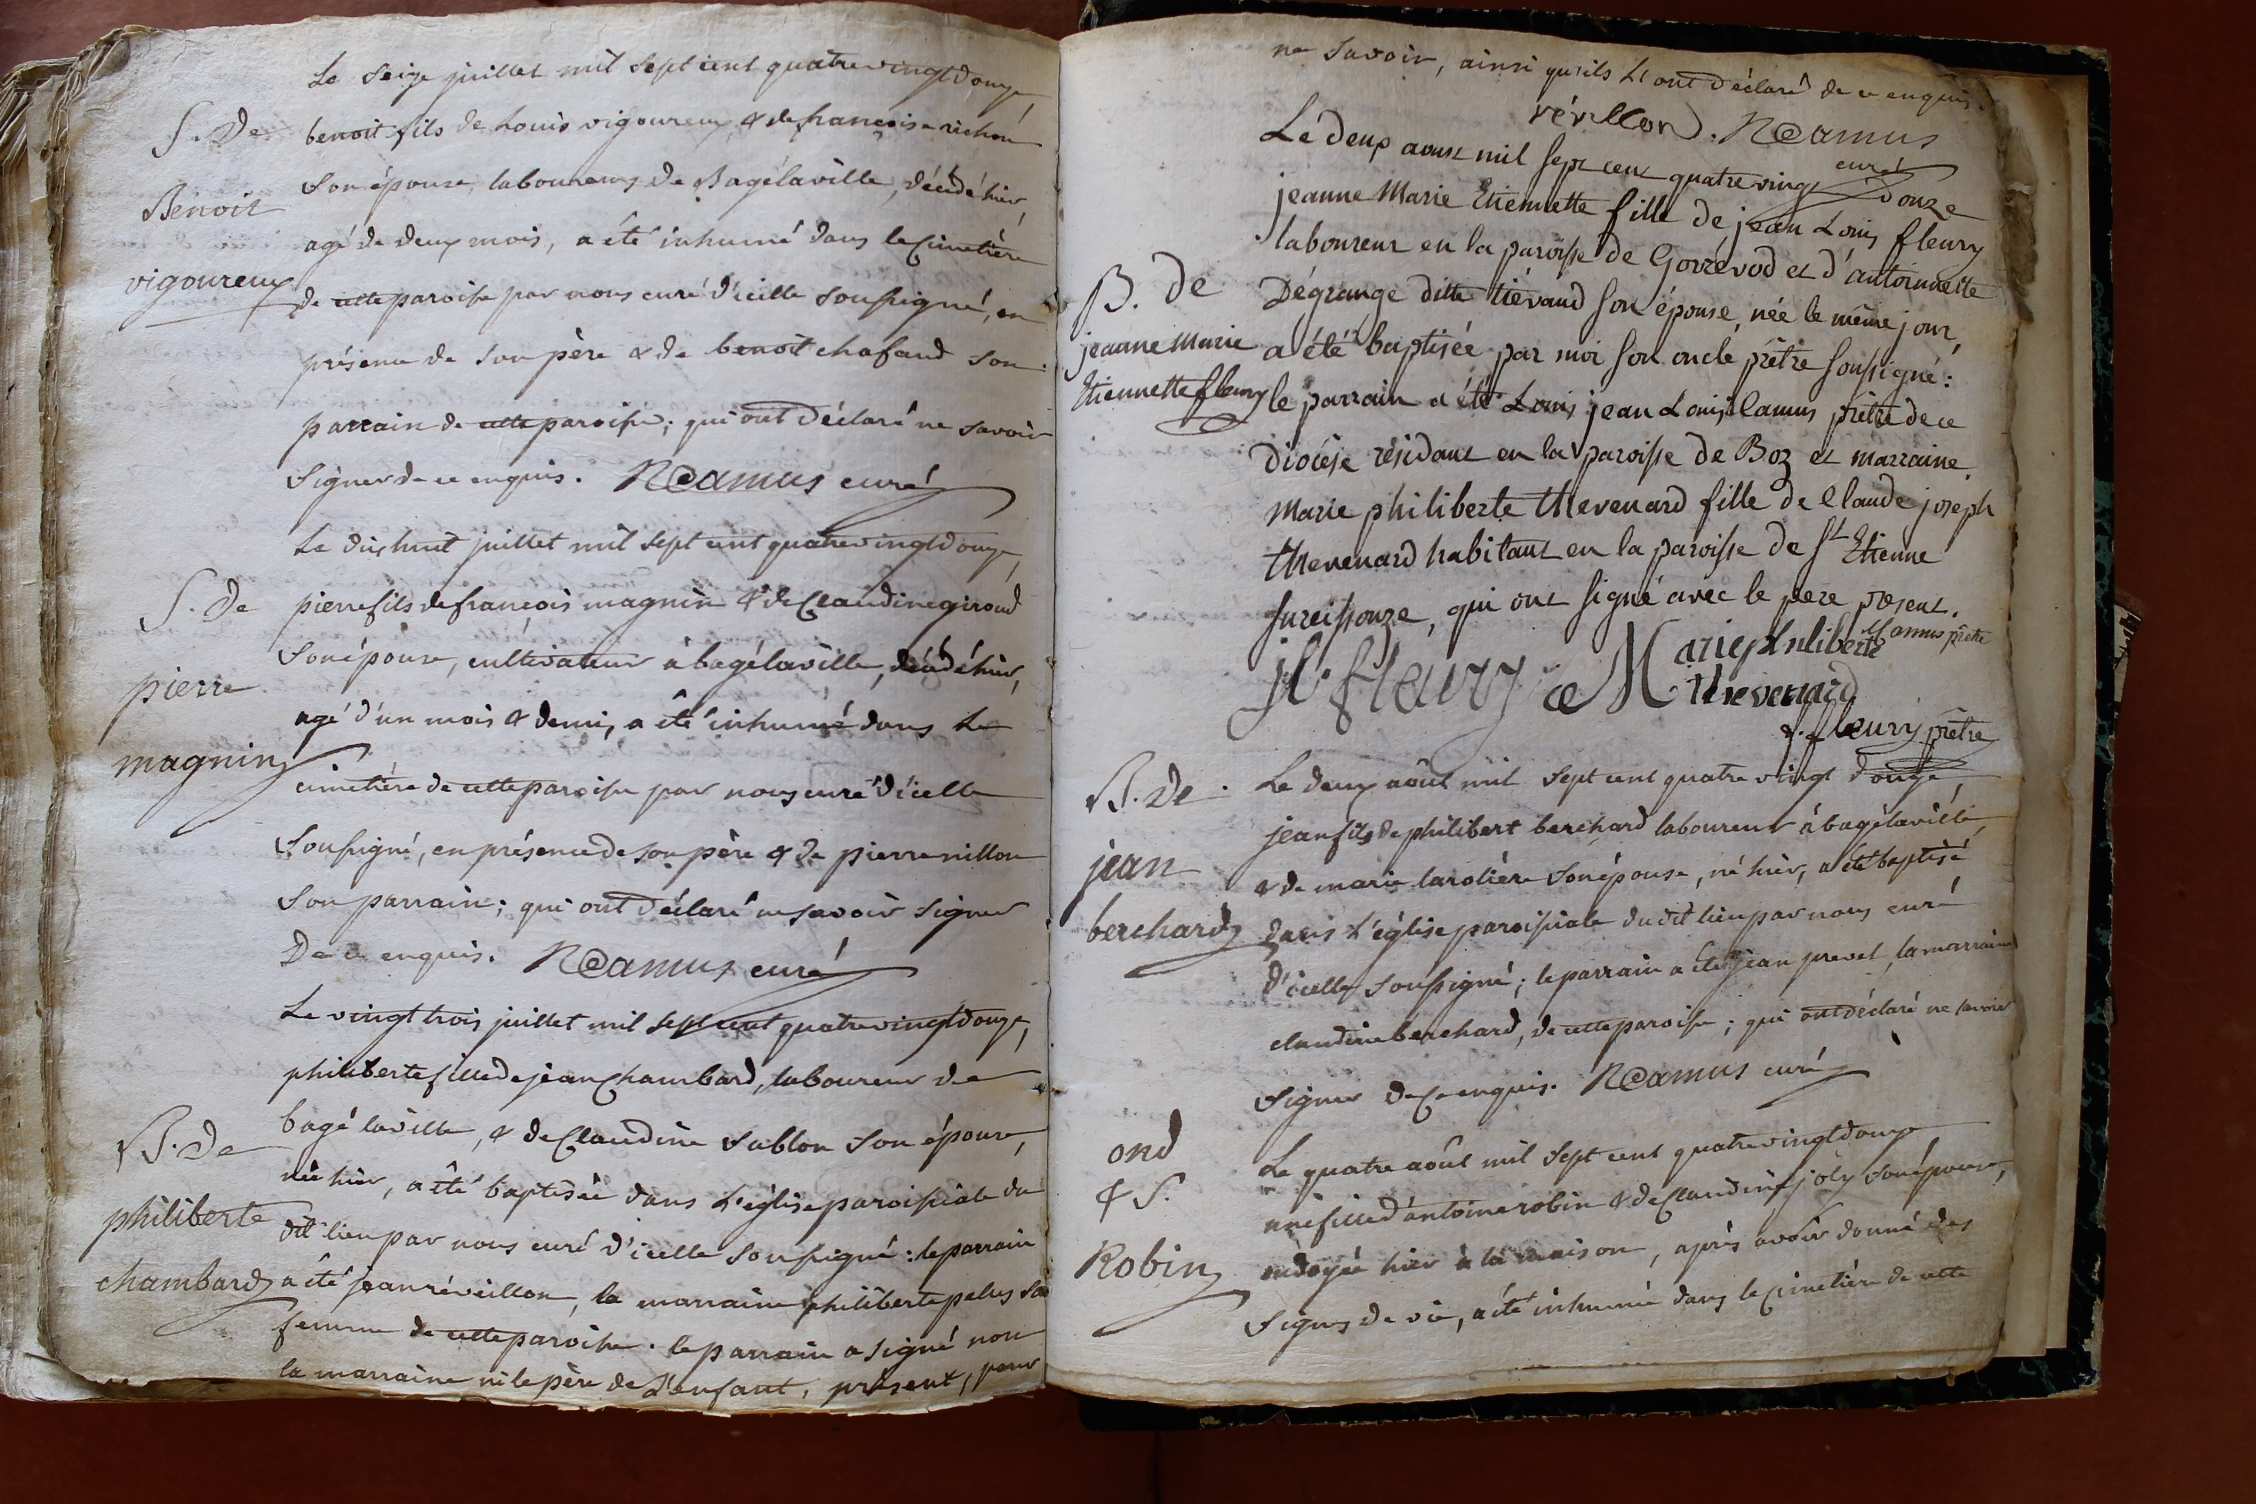 Le seize juillet mil sept cent quatrevingtdouze,
S. De
benoit fils de Louis vigoureux & de françoise richon
Benoit
son épouse, laboureurs de Bagélaville, décédé hier,
agé de deux mois, a été inhumé dans le cimetière
vigoureux
de cette paroisse par nous curé d'icelle soussigné, en
présence de son père & de benoît chafaud son
parrain de cette paroisse; qui ont déclaré ne savoir
signer de ce enquis. Camus curé
Le dix huit juillet mil sept cent quatrevingtdouze,
S. de
pierre fils de françois magnin & de Claudine giroud
son épouse, cultivateur à bagélaville, décédé hier,
pierre
agé d'un mois & demi, a été inhumé dans le
magnin
cimetière de cette paroisse par nous curé d'icelle
soussigné, en présence de son père & de pierre nillon
son parrain; qui ont déclaré ne savoir signer
De ce enquis. Camus curé
Le vingt trois juillet mil sept cent quatrevingtdouze,
philiberte fille de jean Chambard, laboureur de
B. de
bagé laville, & de Claudine sablon son épouse,
née hier, a été baptisée dans l'église paroissiale du
philiberte
dit lieu par nous curé d'icelle soussigné: le parrain
chambard
a été jean réveillon, la marraine philiberte pelus sa
femme de cette paroisse. le parrain a signé non
la marraine ni le père de l'enfant, présent, pour
ne savoir, ainsi qu'ils l'ont déclaré de ce enquis.
révellon. Camus
curé
Le deux aoust mil sept cent quatre vingt Douze
jeanne Marie Etiennette fille de jean Louis fleury
laboureur en la paroisse de Gorrévod et d'antoinette
B. de
Dégrange ditte tiévaud son épouse, née le même jour,
jeanne Marie
a été baptisée par moi son oncle prêtre soussigné:
Etiennette fleury
le parrain a été Louis jean Louis Camus prêtre de ce
Diocèse résidant en la paroisse de Boz et marraine
Marie philiberte thevenard fille de Claude joseph
thevenard habitant en la paroisse de St Etienne
sureissouze, qui ont signé avec le pere present.
Camus prêtre
jl. fleury Marie philiberte
thevenard
f. fleury prêtre
B. De
Le deux août mil sept cent quatre vingt douze,
jean fils de philibert berchard laboureur à bagélaville
jean
& de marie larolière son épouse, né hier, a été baptisé
berchard
Dans l'église paroissiale du dit lieu par nous curé
d'icelle soussigné; le parrain a été jean prevel, la marraine
claudine berchard, de cette paroisse; qui ont déclaré ne savoir
signer de ce enquis. Camus curé
ond
Le quatre août mil sept cent quatrevingtdouze
& S.
une fille d'antoine robin & de Claudine joly son épouse,
Robin
ondoyée hier à la maison, après avoir donné des
signes de vie, a été inhumée dans le cimetière de cette